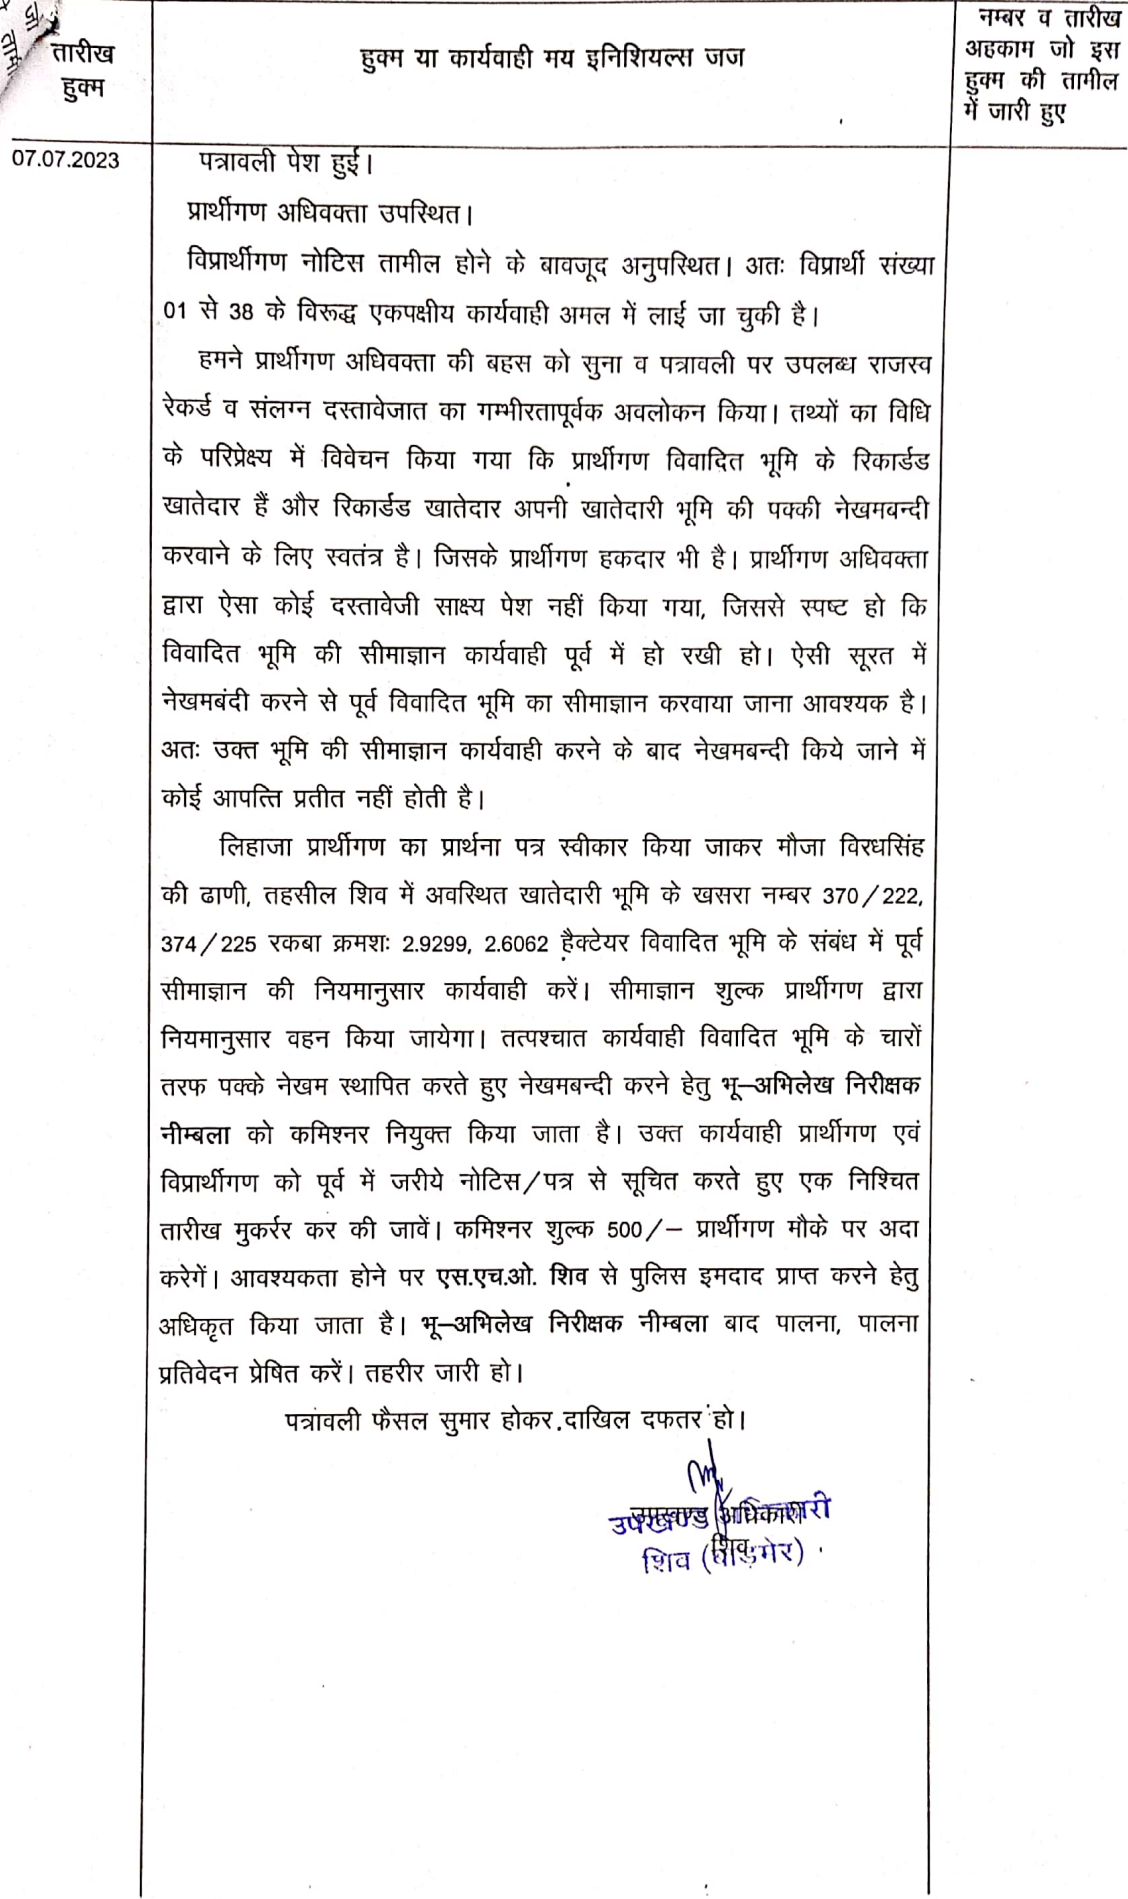 तारीख
हुक्म
हुक्म या कार्यवाही मय इनिशियल्स जज
नम्बर व तारीख
अहकाम जो इस
हुक्म की तामील
में जारी हुए
07.07.2023
पत्रावली पेश हुई।
प्रार्थीगण अधिवक्ता उपस्थित।
विप्रार्थीगण नोटिस तामील होने के बावजूद अनुपस्थित। अतः विप्रार्थी संख्या
01 से 38 के विरूद्ध एकपक्षीय कार्यवाही अमल में लाई जा चुकी है।
हमने प्रार्थीगण अधिवक्ता की बहस को सुना व पत्रावली पर उपलब्ध राजस्व
रेकर्ड व संलग्न दस्तावेजात का गम्भीरतापूर्वक अवलोकन किया। तथ्यों का विधि
के परिप्रेक्ष्य में विवेचन किया गया कि प्रार्थीगण विवादित भूमि के रिकार्डड
खातेदार हैं और रिकार्डड खातेदार अपनी खातेदारी भूमि की पक्की नेखमबन्दी
करवाने के लिए स्वतंत्र है। जिसके प्रार्थीगण हकदार भी है। प्रार्थीगण अधिवक्ता
द्वारा ऐसा कोई दस्तावेजी साक्ष्य पेश नहीं किया गया, जिससे स्पष्ट हो कि
विवादित भूमि की सीमाज्ञान कार्यवाही पूर्व में हो रखी हो। ऐसी सूरत में
नेखमबंदी करने से पूर्व विवादित भूमि का सीमाज्ञान करवाया जाना आवश्यक है।
अतः उक्त भूमि की सीमाज्ञान कार्यवाही करने के बाद नेखमबन्दी किये जाने में
कोई आपत्ति प्रतीत नहीं होती है।
लिहाजा प्रार्थीगण का प्रार्थना पत्र स्वीकार किया जाकर मौजा विरधसिंह
की ढाणी, तहसील शिव में अवस्थित खातेदारी भूमि के खसरा नम्बर 370/222,
374/225 रकबा क्रमशः 2.9299, 2.6062 हैक्टेयर विवादित भूमि के संबंध में पूर्व
सीमाज्ञान की नियमानुसार कार्यवाही करें। सीमाज्ञान शुल्क प्रार्थीगण द्वारा
नियमानुसार वहन किया जायेगा। तत्पश्चात कार्यवाही विवादित भूमि के चारों
तरफ पक्के नेखम स्थापित करते हुए नेखमबन्दी करने हेतु भू–अभिलेख निरीक्षक
नीम्बला को कमिश्नर नियुक्त किया जाता है। उक्त कार्यवाही प्रार्थीगण एवं
विप्रार्थीगण को पूर्व में जरीये नोटिस/पत्र से सूचित करते हुए एक निश्चित
तारीख मुकर्रर कर की जावें। कमिश्नर शुल्क 500/– प्रार्थीगण मौके पर अदा
करेगें। आवश्यकता होने पर एस.एच.ओ. शिव से पुलिस इमदाद प्राप्त करने हेतु
अधिकृत किया जाता है। भू–अभिलेख निरीक्षक नीम्बला बाद पालना, पालना
प्रतिवेदन प्रेषित करें। तहरीर जारी हो।
पत्रावली फैसल सुमार होकर दाखिल दफतर हो।
उपखण्ड अधिकारी
शिव
उपखण्ड अधिकारी
शिव (बाड़मेर)